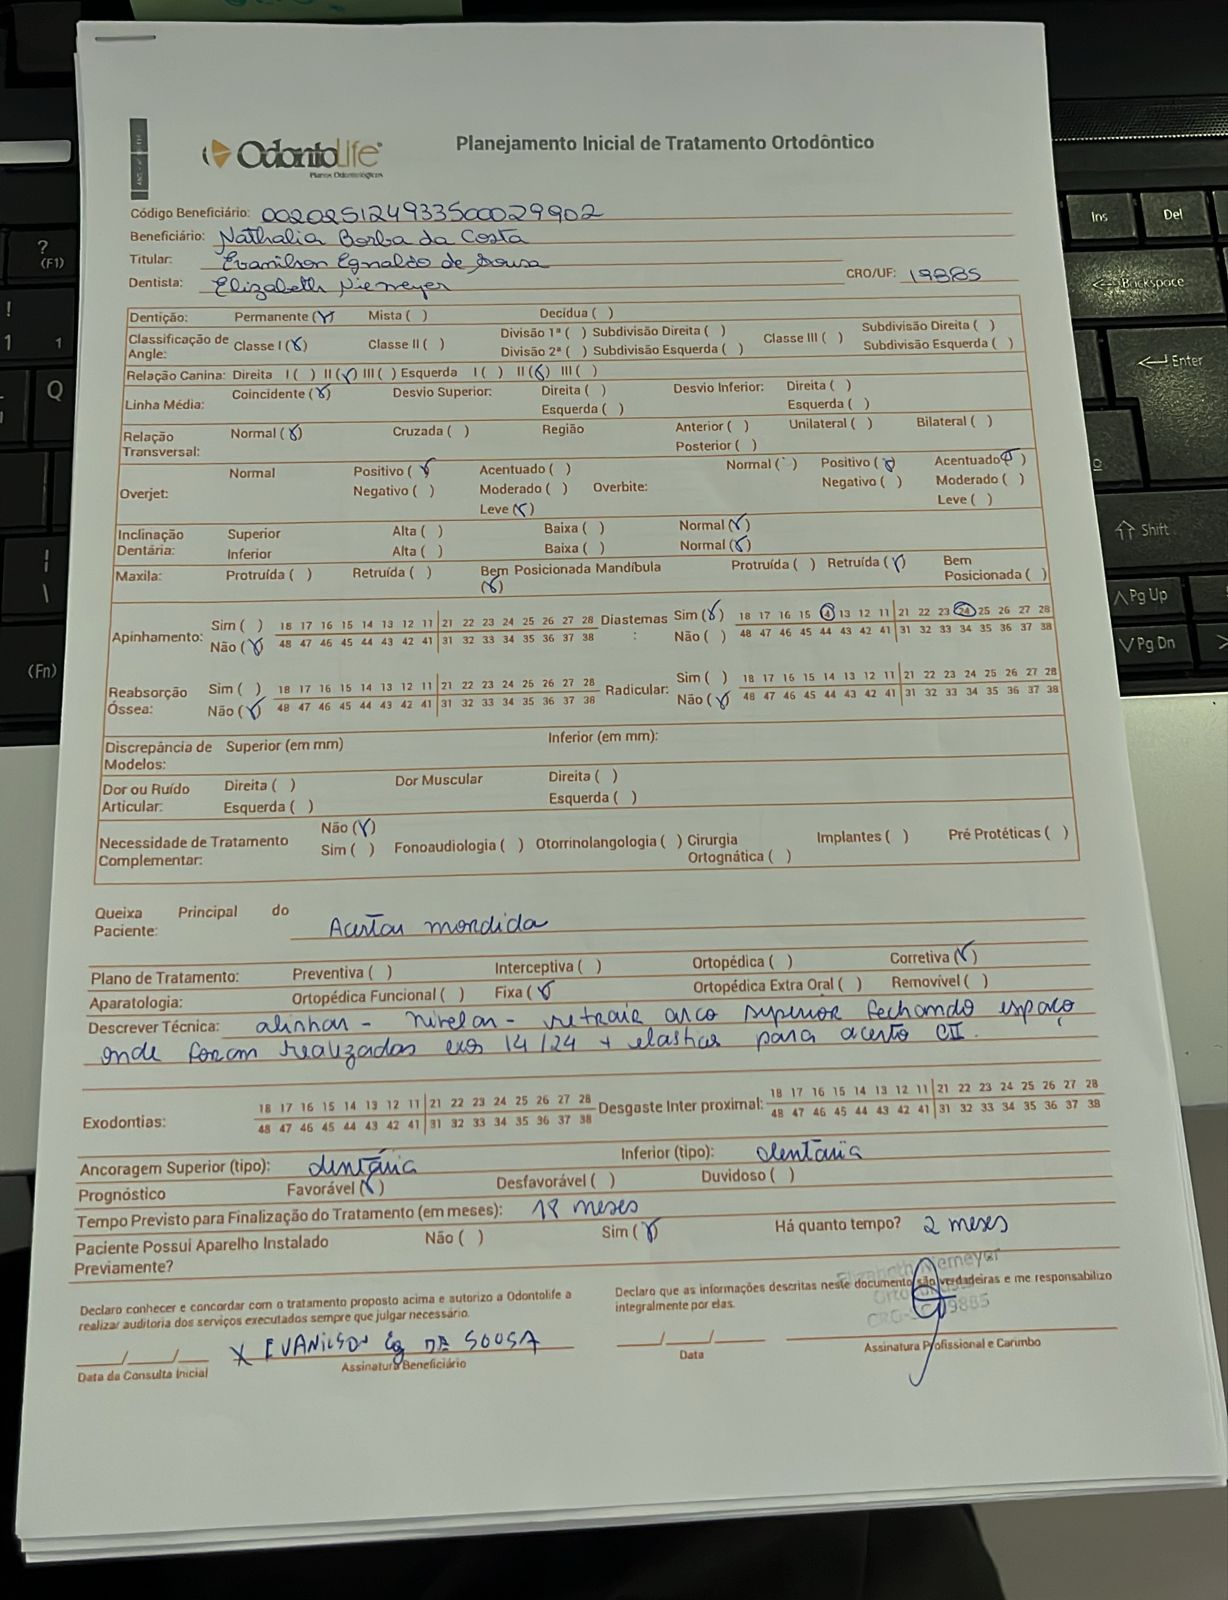 OdontoLife
Planos Odontológicos
Planejamento Inicial de Tratamento Ortodôntico
Código Beneficiário: 00202512493350002990​2
Beneficiário: Nathalia Borba da Costa
Titular: Evanilson Egnaldo de Sousa
Dentista: Elizabeth Niemeyer CRO/UF: 19885
Dentição: Permanente (X) Mista ( ) Decídua ( )
Classificação de Angle: Classe I (X) Classe II ( ) Divisão 1ª ( ) Subdivisão Direita ( ) Classe III ( ) Subdivisão Direita ( )
Divisão 2ª ( ) Subdivisão Esquerda ( ) Subdivisão Esquerda ( )
Relação Canina: Direita I ( ) II (X) III ( ) Esquerda I ( ) II (X) III ( )
Linha Média: Coincidente (X) Desvio Superior: Direita ( ) Desvio Inferior: Direita ( )
Esquerda ( ) Esquerda ( )
Relação Transversal: Normal (X) Cruzada ( ) Região Anterior ( ) Unilateral ( ) Bilateral ( )
Posterior ( )
Overjet: Normal Positivo (X) Acentuado ( ) Overbite: Normal ( ) Positivo (X) Acentuado (X)
Negativo ( ) Moderado ( ) Negativo ( ) Moderado ( )
Leve (X) Leve ( )
Inclinação Dentária: Superior Alta ( ) Baixa ( ) Normal (X)
Inferior Alta ( ) Baixa ( ) Normal (X)
Maxila: Protruída ( ) Retruída ( ) Bem Posicionada (X) Mandíbula Protruída ( ) Retruída (X) Bem Posicionada ( )
Apinhamento: Sim ( ) 18 17 16 15 14 13 12 11 21 22 23 24 25 26 27 28 Diastemas: Sim (X) 18 17 16 15 14 13 12 11 21 22 23 24 25 26 27 28
Não (X) 48 47 46 45 44 43 42 41 31 32 33 34 35 36 37 38 Não ( ) 48 47 46 45 44 43 42 41 31 32 33 34 35 36 37 38
Reabsorção Óssea: Sim ( ) 18 17 16 15 14 13 12 11 21 22 23 24 25 26 27 28 Radicular: Sim ( ) 18 17 16 15 14 13 12 11 21 22 23 24 25 26 27 28
Não (X) 48 47 46 45 44 43 42 41 31 32 33 34 35 36 37 38 Não (X) 48 47 46 45 44 43 42 41 31 32 33 34 35 36 37 38
Discrepância de Modelos: Superior (em mm) Inferior (em mm):
Dor ou Ruído Articular: Direita ( ) Dor Muscular Direita ( )
Esquerda ( ) Esquerda ( )
Necessidade de Tratamento Complementar: Não (X)
Sim ( ) Fonoaudiologia ( ) Otorrinolangologia ( ) Cirurgia Ortognática ( ) Implantes ( ) Pré Protéticas ( )
Queixa Principal do Paciente: Acertar mordida
Plano de Tratamento: Preventiva ( ) Interceptiva ( ) Ortopédica ( ) Corretiva (X)
Aparatologia: Ortopédica Funcional ( ) Fixa (X) Ortopédica Extra Oral ( ) Removível ( )
Descrever Técnica: alinhar - nivelar - retrair arco superior fechando espaço
onde foram realizadas exos 14/24 + elasticos para acerto CII.
Exodontias: 18 17 16 15 14 13 12 11 21 22 23 24 25 26 27 28 Desgaste Inter proximal: 18 17 16 15 14 13 12 11 21 22 23 24 25 26 27 28
48 47 46 45 44 43 42 41 31 32 33 34 35 36 37 38 48 47 46 45 44 43 42 41 31 32 33 34 35 36 37 38
Ancoragem Superior (tipo): dentária Inferior (tipo): dentária
Prognóstico Favorável (X) Desfavorável ( ) Duvidoso ( )
Tempo Previsto para Finalização do Tratamento (em meses): 18 meses
Paciente Possui Aparelho Instalado Previamente? Não ( ) Sim (X) Há quanto tempo? 2 meses
Declaro conhecer e concordar com o tratamento proposto acima e autorizo a Odontolife a
realizar auditoria dos serviços executados sempre que julgar necessário.
Declaro que as informações descritas neste documento são verdadeiras e me responsabilizo
integralmente por elas.
Elizabeth Niemeyer
19885
___/___/___ X EVANILSON Eg DE SOUSA ___/___/___
Data da Consulta Inicial Assinatura Beneficiário Data Assinatura Profissional e Carimbo
Ins
Del
Backspace
Enter
Shift
Pg Up
Pg Dn
?
(F1)
!
1
1
Q
|
\
(Fn)